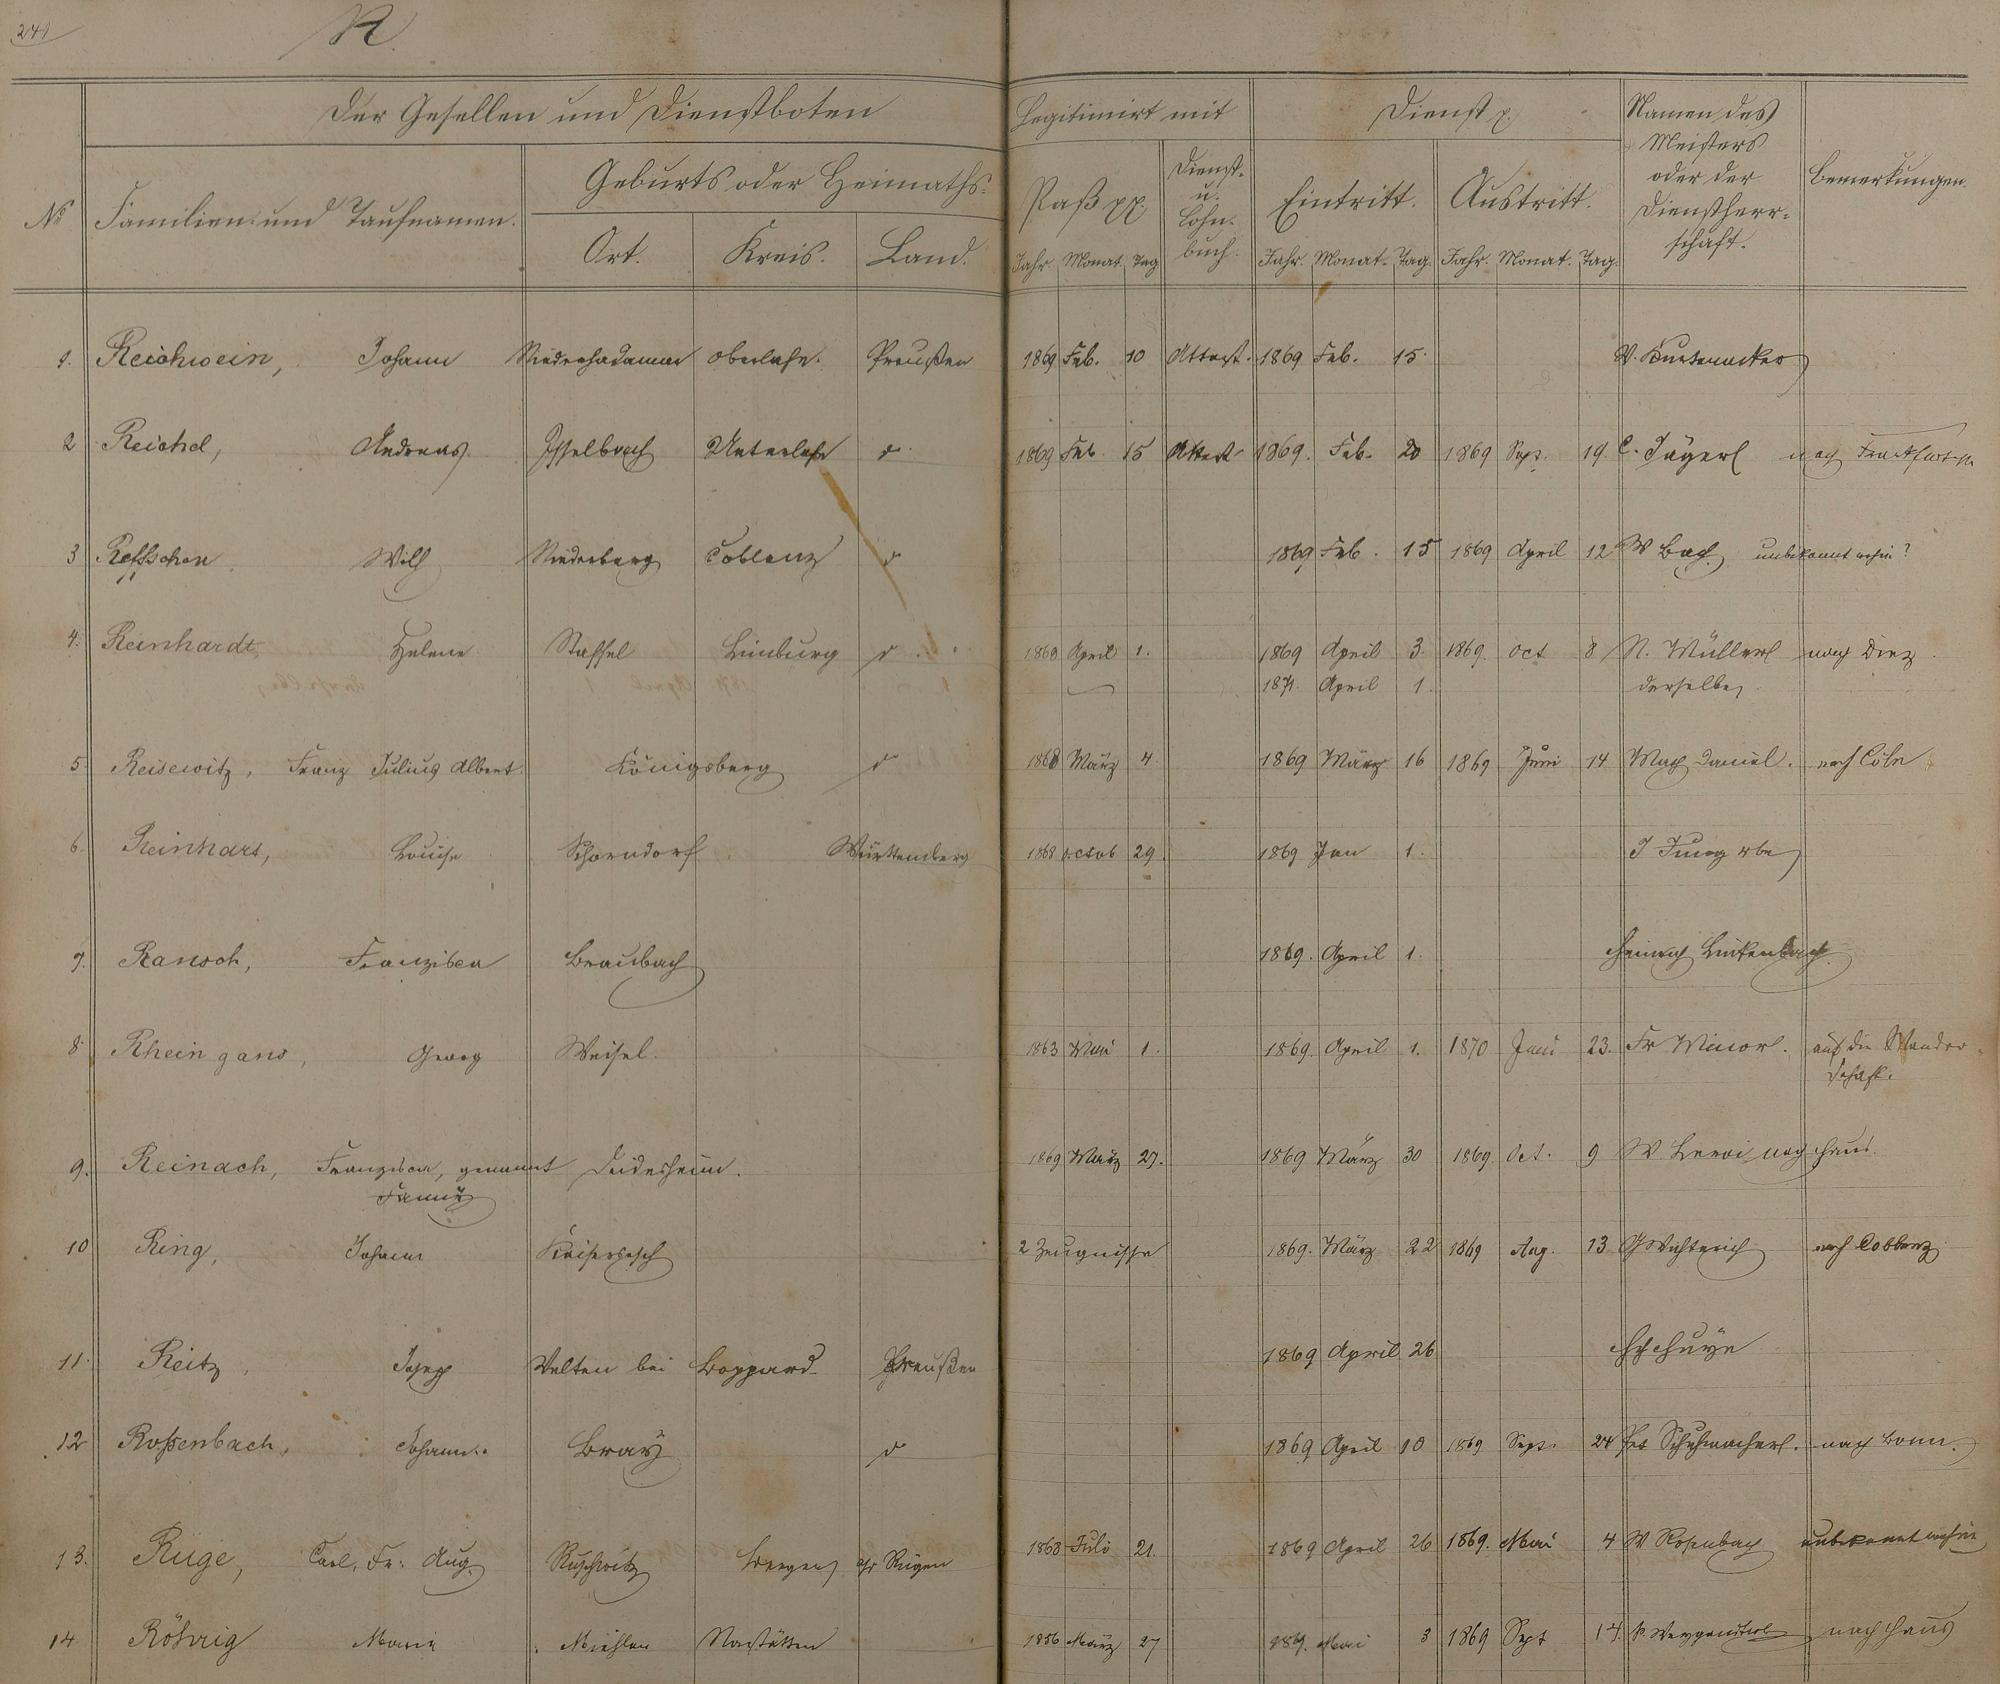 241
R.
Der Gesellen und Dienstboten
Legitimirt mit
Dienst p.
Namen des Meisters oder der Dienstherr-schaft.
Bemerkungen.
No
Familien- und Taufnamen.
Geburts oder Heimaths-
Ort. Kreis. Land.
Paß pp.
Jahr. Monat. Tag
Dienst- u. Lohn-buch.
Eintritt.
Jahr. Monat. Tag.
Austritt.
Jahr. Monat. Tag.
1. Reichwein, Johann Niederhadamar Oberlahn. Preußen 1869 Feb. 10 Attest. 1869 Feb. 15. W. Kurtenacker
2 Reichel, Andreas Isselbach Unterlahn d 1869 Feb. 15 Attest 1869. Feb. 20 1869 Sept. 19. C. Jäger nach Frankfurt
3 Wilh Niederberg Coblenz d 1869 Feb. 15 1869 April 12 W Bach unbekannt wohin?
4. Reinhardt Helene Staffel Limburg d 1869 April 1. 1869 April 3. 1869. Oct 8 N. Müller nach Diez
1871. April 1. derselbe
5. Reisewitz, Franz Julius Albert Königsberg d 1868 März 4. 1869 März 16 1869 Juni 14 Max Daniel. nach Cöln
6. Reinhars, Louise Schorndorf Württemberg 1868 Octob 29. 1869 Jan 1. J Jung wbe
7. Ransch, Franzisca Braubach 1869. April 1. Heinrich Linkenbach
8. Rheingans, Georg Weisel. 1863 Mai 1. 1869. April 1. 1870 Juni 23. Fr auf die Wander-
schaft.
9. Reinach, Franzisca, genannt Deidesheim. 1869 März 27. 1869 März 30 1869. Oct. 9 W Leroi nach Haus.
Fanny
10 Ring, Johann Kaisersesch 2 Zeugnisse 1869. März 22 1869 Aug. 13 nach Coblenz
11. Reitz, Joseph Velten bei Boppard Preußen 1869 April 26
12 Roßenbach, Johann. Braÿ d 1869 April 10 1869 Sept. 24 Schuhmacher. nach Bonn.
13. Rüge, Carl, Fr: Aug. Bergen Rügen 1868 Juli 21. 1869 April 26 1869. Mai 4 W Rosenbach unbekannt wohin
14 Röhrig Maria Miehlen Nastätten 1856 März 27 1869. Mai 3 1869 Sept 14. nach Haus